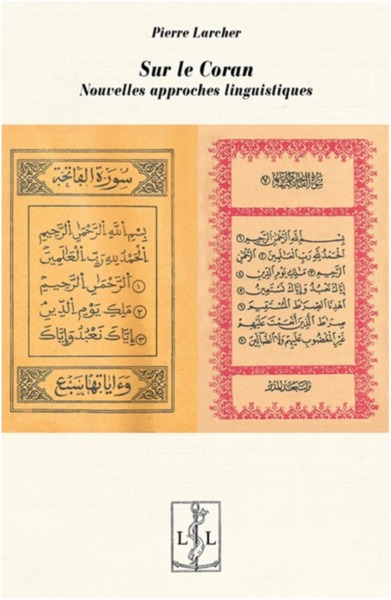 Pierre Larcher
Sur le Coran
Nouvelles approches linguistiques
سورة الفاتحة
بِسْمِ اللَّهِ الرَّحْمَٰنِ الرَّحِيمِ
الْحَمْدُ لِلَّهِ رَبِّ الْعَالَمِينَ
الرَّحْمَٰنِ الرَّحِيمِ ١
مَلِكِ يَوْمِ الدِّينِ ٢
إِيَّاكَ نَعْبُدُ وَإِيَّاكَ ٣
وءاياتها سبع
بِسْمِ اللَّهِ الرَّحْمَٰنِ الرَّحِيمِ ١
الْحَمْدُ لِلَّهِ رَبِّ الْعَالَمِينَ ٢ الرَّحْمَٰنِ
الرَّحِيمِ ٣ مَلِكِ يَوْمِ الدِّينِ ٤
إِيَّاكَ نَعْبُدُ وَإِيَّاكَ نَسْتَعِينُ ٥
اهْدِنَا الصِّرَاطَ الْمُسْتَقِيمَ ٦
صِرَاطَ الَّذِينَ أَنْعَمْتَ عَلَيْهِمْ
غَيْرِ الْمَغْضُوبِ عَلَيْهِمْ وَلَا الضَّالِّينَ ٧
L L